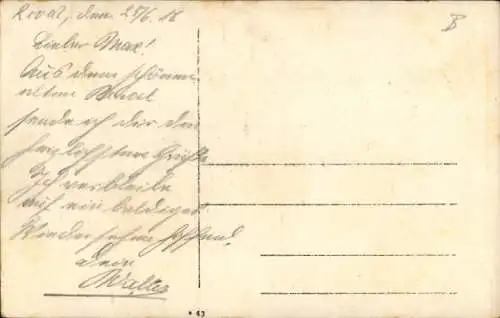 Reval, den 27/6. 18
Lieber Max!
Aus dem schönen
alten Reval
sende ich dir die
herzlichsten Grüße
Ich verbleibe
auf ein baldiges
Wiedersehen hoffend.
dein
Walter